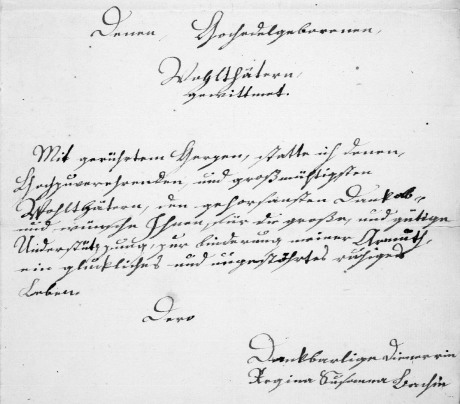 Denen, Hochedelgeborenen,
Wohlthätern,
gewittmet.
Mit gerührtem Herzen, statte ich denen,
Hochzuverehrenden, und großmüthigsten
Wohlthätern, den gehorsansten Dank ab,
und wünsche Ihnen, für die große, und gütige
Understützung, zur Linderung meiner Armuth,
ein glückliches und ungestöhrtes ruhiges
Leben.
Dero
Dankbarlige Dienerrin
Regina Susanna Bachin